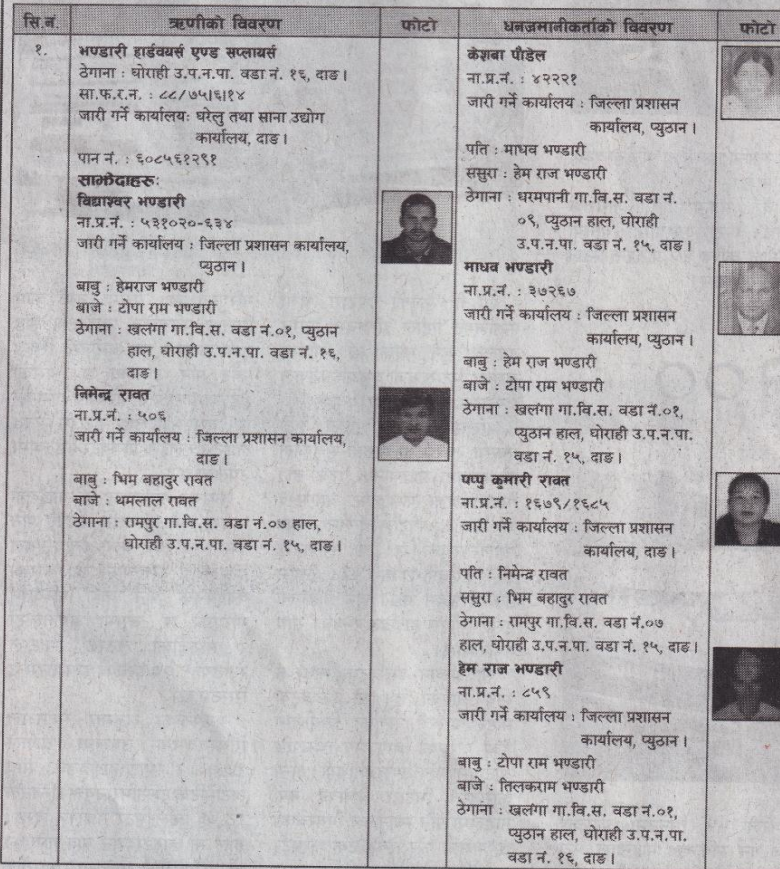 सि.नं.
ऋणीको विवरण
फोटो
धनजमानीकर्ताको विवरण
फोटो
१.
भण्डारी हार्डवयर्स एण्ड सप्लायर्स
ठेगाना : घोराही उ.प.न.पा. वडा नं. १६, दाङ।
सा.फ.र.न. : ८८/७५|६|१४
जारी गर्ने कार्यालयः घरेलु तथा साना उद्योग
कार्यालय, दाङ।
पान नं. : ६०८५६१२९१
साझेदाहरुः
विद्याश्वर भण्डारी
ना.प्र.नं. : ५३१०२०-६३४
जारी गर्ने कार्यालय : जिल्ला प्रशासन कार्यालय,
प्युठान।
बाबु : हेमराज भण्डारी
बाजे : टोपा राम भण्डारी
ठेगाना : खलंगा गा.वि.स. वडा नं.०१, प्युठान
हाल, घोराही उ.प.न.पा. वडा नं. १६,
दाङ।
निमेन्द्र रावत
ना.प्र.नं. : ५०६
जारी गर्ने कार्यालय : जिल्ला प्रशासन कार्यालय,
दाङ।
बाबु : भिम बहादुर रावत
बाजे : थमलाल रावत
ठेगाना : रामपुर गा.वि.स. वडा नं.०७ हाल,
घोराही उ.प.न.पा. वडा नं. १५, दाङ।
केशबा पौडेल
ना.प्र.नं. : ४२२२१
जारी गर्ने कार्यालय : जिल्ला प्रशासन
कार्यालय, प्युठान।
पति : माधव भण्डारी
ससुरा : हेम राज भण्डारी
ठेगाना : धरमपानी गा.वि.स. वडा नं.
०९, प्युठान हाल, घोराही
उ.प.न.पा. वडा नं. १५, दाङ।
माधव भण्डारी
ना.प्र.नं. : ३७२६७
जारी गर्ने कार्यालय : जिल्ला प्रशासन
कार्यालय, प्युठान।
बाबु : हेम राज भण्डारी
बाजे : टोपा राम भण्डारी
ठेगाना : खलंगा गा.वि.स. वडा नं.०१,
प्युठान हाल, घोराही उ.प.न.पा.
वडा नं. १५, दाङ।
पप्पु कुमारी रावत
ना.प्र.नं. : १६७९/१६८५
जारी गर्ने कार्यालय : जिल्ला प्रशासन
कार्यालय, दाङ।
पति : निमेन्द्र रावत
ससुरा : भिम बहादुर रावत
ठेगाना : रामपुर गा.वि.स. वडा नं.०७
हाल, घोराही उ.प.न.पा. वडा नं. १५, दाङ।
हेम राज भण्डारी
ना.प्र.नं. : ८५९
जारी गर्ने कार्यालय : जिल्ला प्रशासन
कार्यालय, प्युठान।
बाबु : टोपा राम भण्डारी
बाजे : तिलकराम भण्डारी
ठेगाना : खलंगा गा.वि.स. वडा नं.०१,
प्युठान हाल, घोराही उ.प.न.पा.
वडा नं. १६, दाङ।